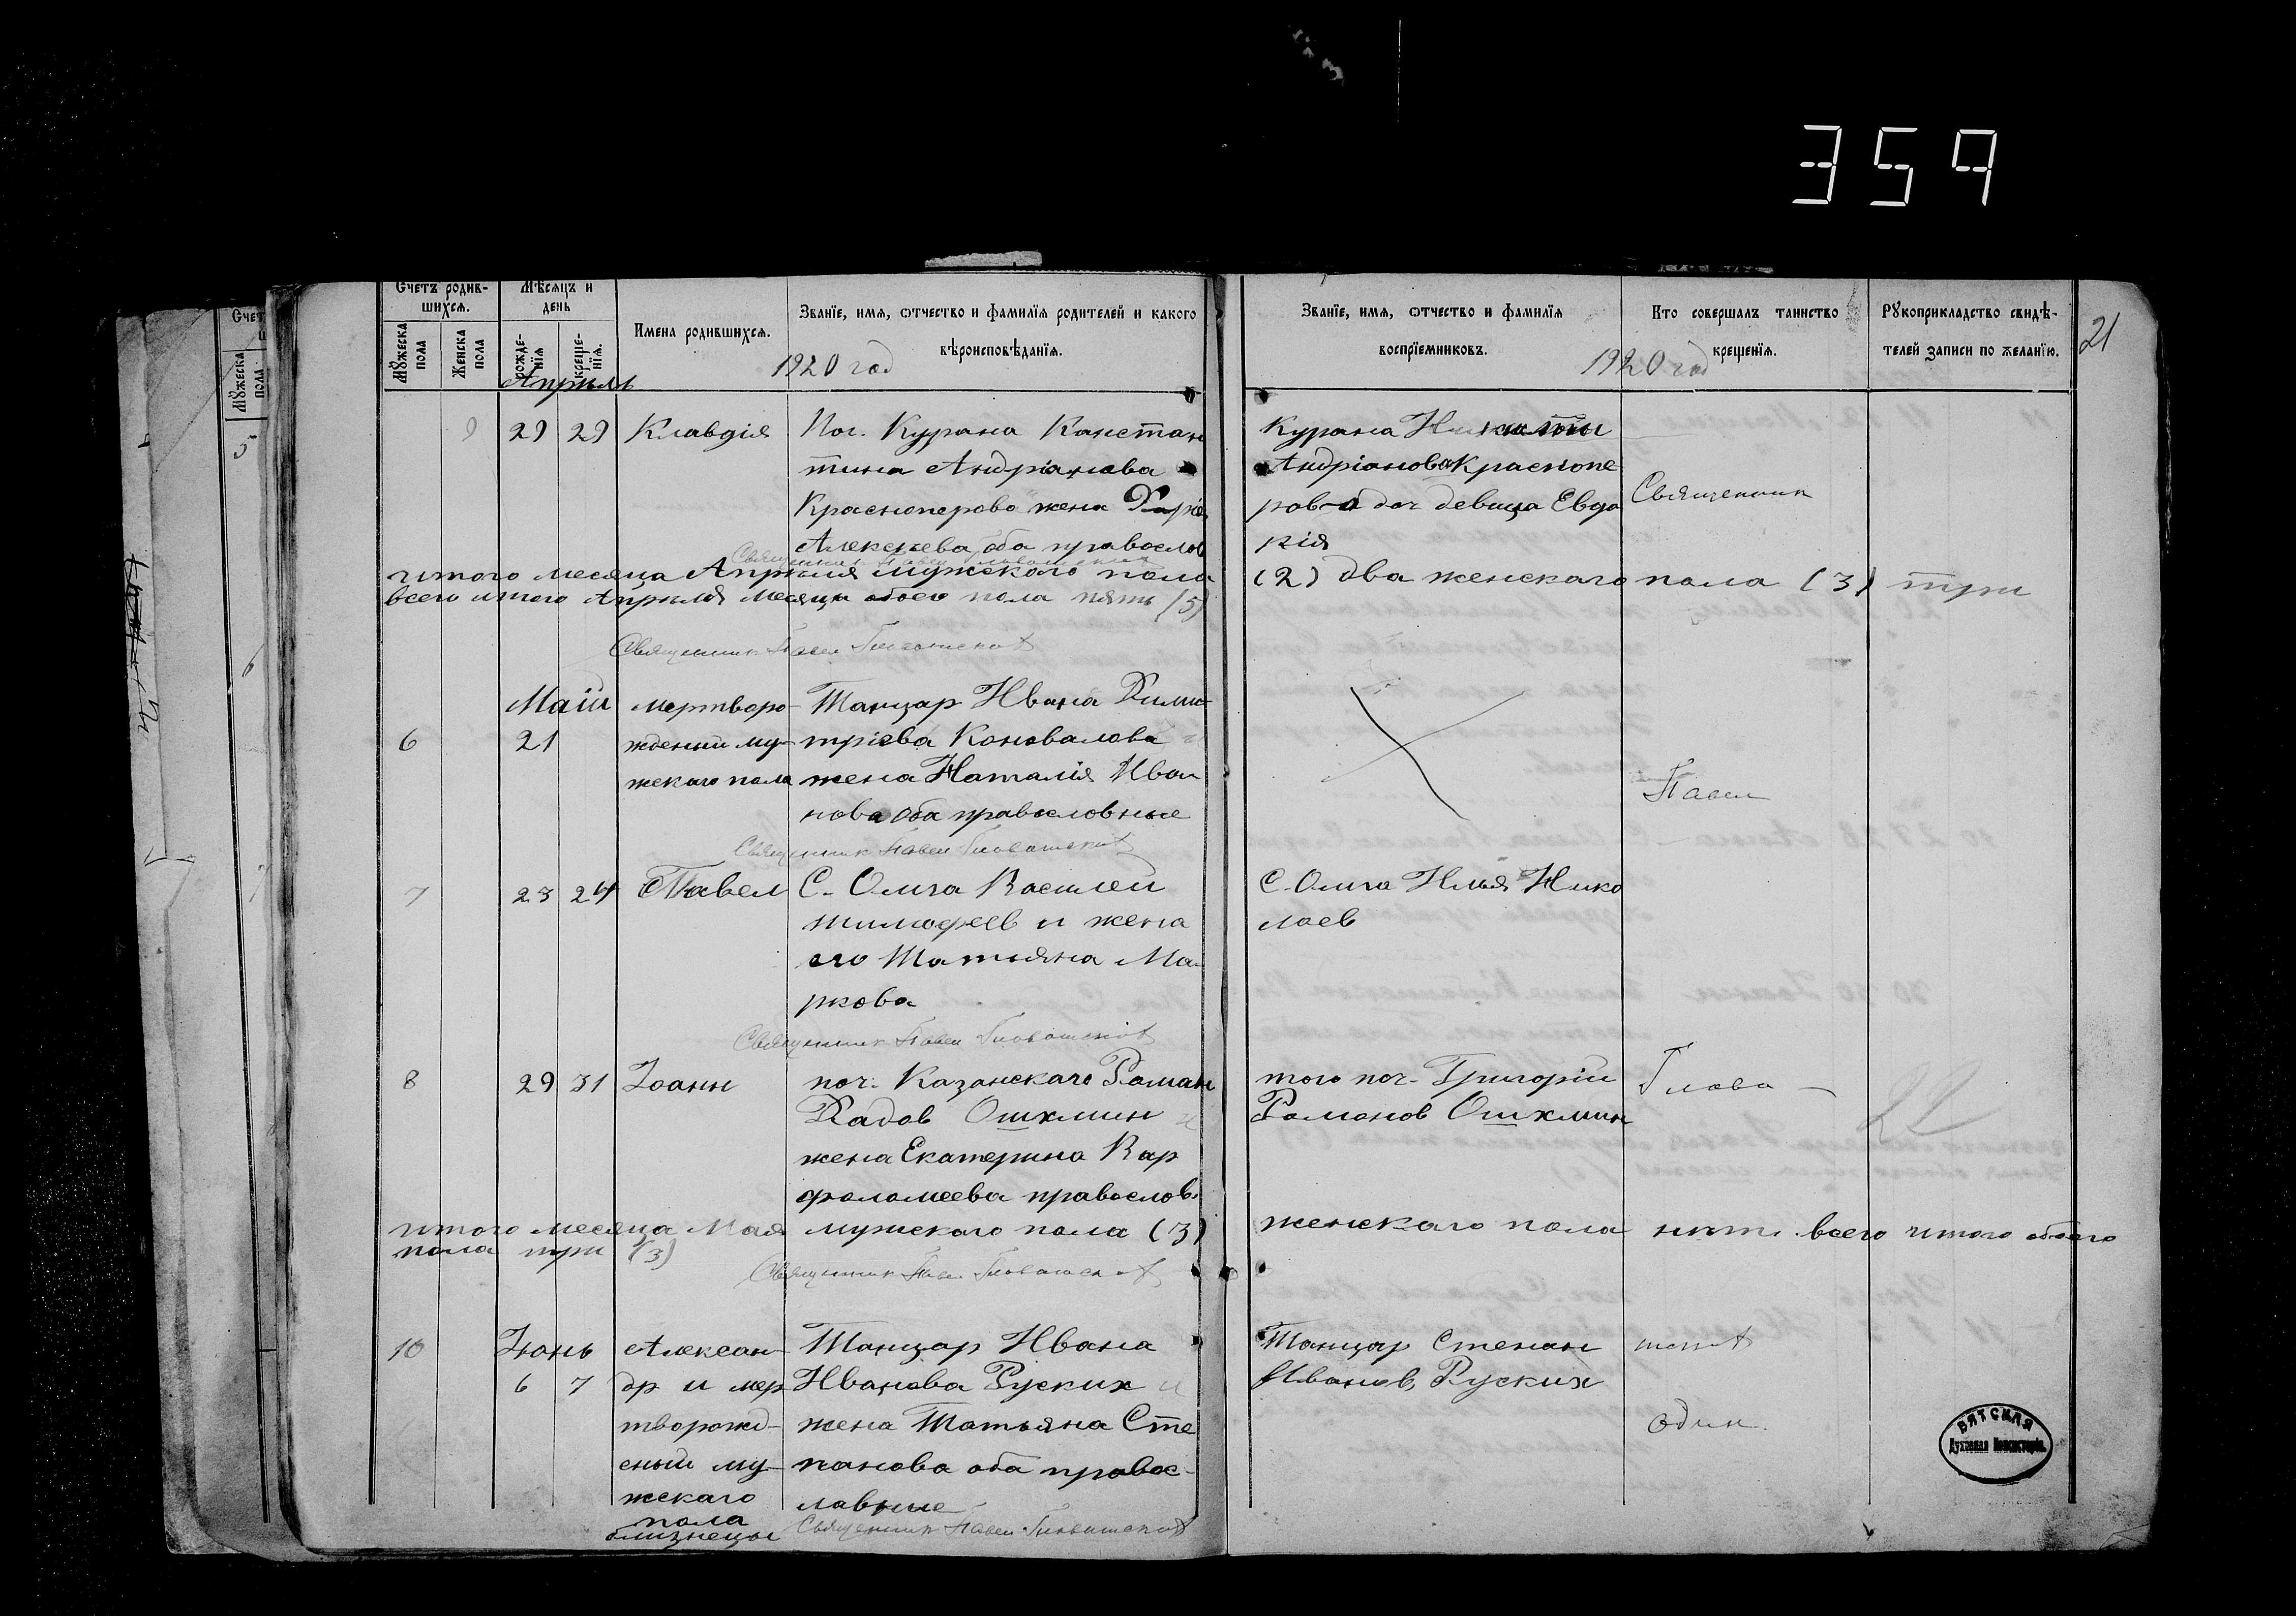 359
Счетъ родив-
шихся.
Мѣсяцъ и
день
Мужеска
пола
Женска
пола
рожде-
нія
креще-
нія.
Имена родившихся.
Званіе, имя, отчество и фамилія родителей и какого
вѣроисповѣданія.
1920 год
Званіе, имя, отчество и фамилія
воспріемниковъ.
Кто совершалъ таинство
крещенія.
1920 год
Рукоприкладство свидѣ-
телей записи по желанію.
21
Счет
Мужеска
пола
5
6
7
Апрель
9 29 29 Клавдія
Поч. Курана Констан
тина Андріанова
Красноперова жена Дарія
Алексеева оба православ
Курана Никиты
Андріанова Краснопе
рова доч девица Евдо
кія
Священник
итого месяца Апреля мужского пола (2) два женскаго пола (3) три
всего итого Апреля месяца обоего пола пять (5)
Священник Павел
Май
6 21
мертворо-
жденый му-
жскаго пола
Танцар Ивана Дими-
тріева Коновалова и
жена Наталія Ива
нова оба православные
Павел
Священник Павел
7 23 24 Павел
С. Олыга Василей
Тимофеев и жена
его Татьяна Ма-
ркова
С. Олыга Илья Нико
лаев
Священник Павел
8 29 31 Іоанн
поч. Казанскаго Роман
Радов Ошклин и
жена Екатерина Вар
фоломеева православ.
того поч. Григорій
Романов Ошклин
Глова-
итого месяца Мая мужскаго пола (3) женскаго пола нет. всего итого обоего
пола три (3)
Священник Павел
10
Іюнь
6 7
Алексан-
др и мер
творожд-
еный му-
жскаго
пола
близнецы
Танцар Ивана
Иванова Руских и
жена Татьяна Сте
панова оба правос-
лавные
Танцар Степан
Иванов Руских
один
Священник Павел
ВЯТСКАЯ
Духовная Консисторія